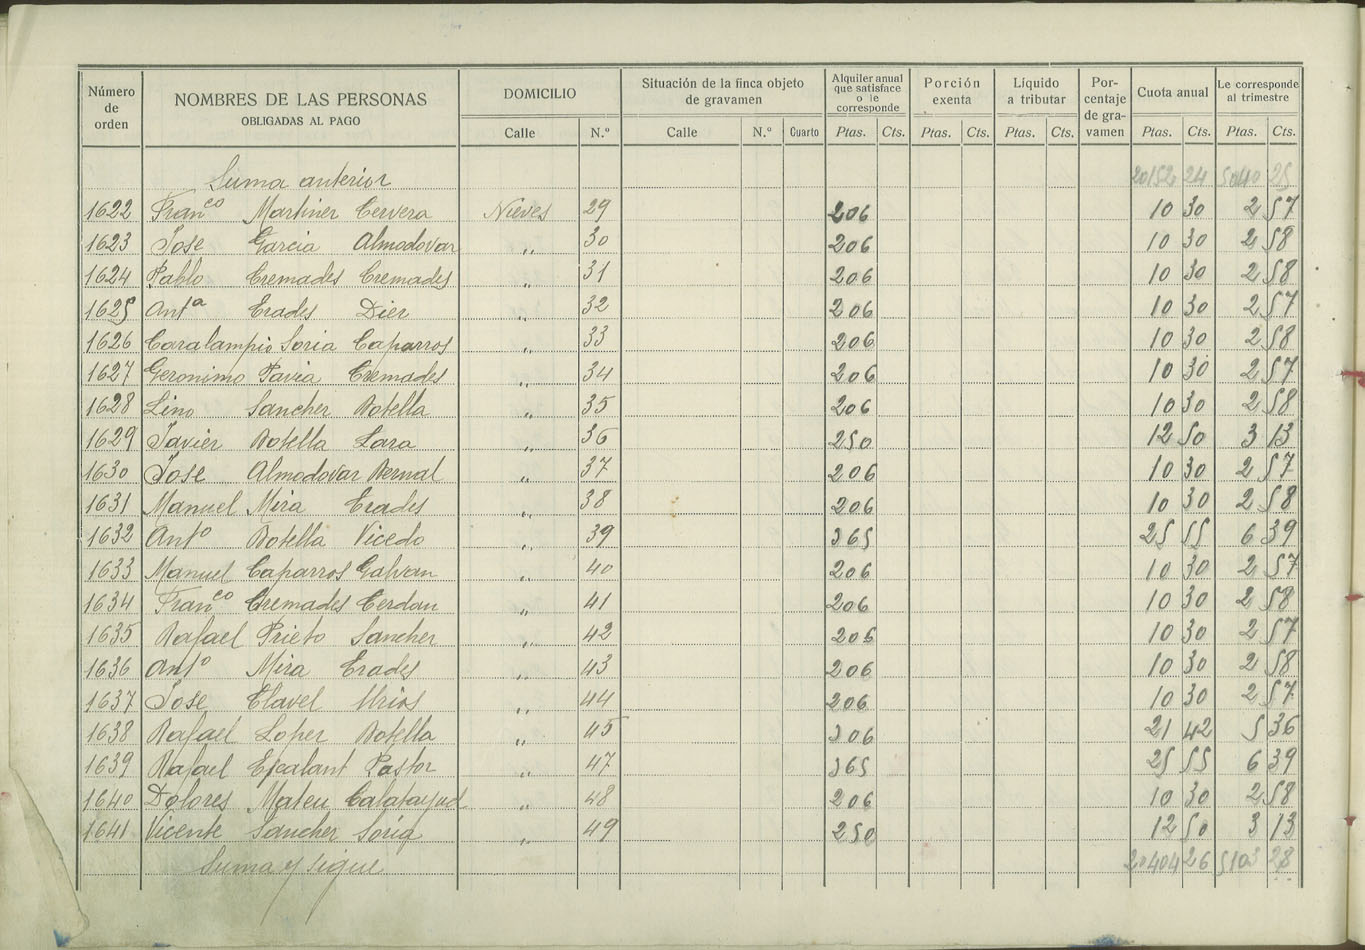 Número de orden NOMBRES DE LAS PERSONAS OBLIGADAS AL PAGO DOMICILIO Situación de la finca objeto de gravamen Alquiler anual que satisface o le corresponde Porción exenta Líquido a tributar Por-centaje de gra-vamen Cuota anual Le corresponde al trimestre
Calle N.º Calle N.º Cuarto Ptas. Cts. Ptas. Cts. Ptas. Cts. Ptas. Cts. Ptas. Cts.
Suma anterior 20152 24 5040 25
1622 Franco Martiner Cervera Nieves 29 206 10 30 2 57
1623 Jose Garcia Almodovar " 30 206 10 30 2 58
1624 Pablo Cremades Cremades " 31 206 10 30 2 58
1625 Anta Erades Dier " 32 206 10 30 2 57
1626 Caralampio Soria Caparros " 33 206 10 30 2 58
1627 Geronimo Pavia Cremades " 34 206 10 30 2 57
1628 Lino Sancher Botella " 35 206 10 30 2 58
1629 Javier Botella Lara " 36 250 12 50 3 13
1630 Jose Almodovar Bernal " 37 206 10 30 2 57
1631 Manuel Mira Erades " 38 206 10 30 2 58
1632 Anto Botella Vicedo " 39 365 25 55 6 39
1633 Manuel Caparros Galvan " 40 206 10 30 2 57
1634 Franco Cremades Cerdan " 41 206 10 30 2 58
1635 Rafael Prieto Sancher " 42 206 10 30 2 57
1636 Anto Mira Erades " 43 206 10 30 2 58
1637 Jose Clavel Urios " 44 206 10 30 2 57
1638 Rafael Loper Botella " 45 306 21 42 5 36
1639 Rafael Escalant Pastor " 47 365 25 55 6 39
1640 Dolores Mateu Calatayud " 48 206 10 30 2 58
1641 Vicente Sancher Soria " 49 250 12 50 3 13
Suma y sigue 20404 26 5103 28